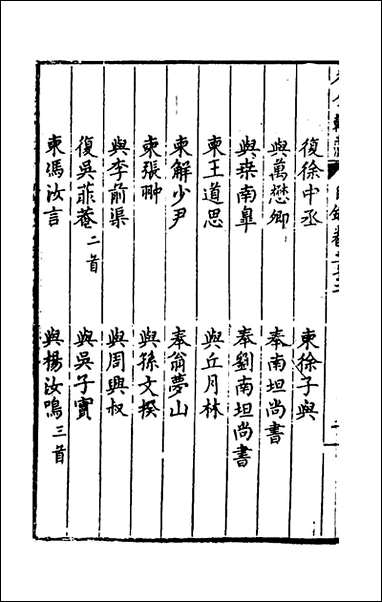 復徐中丞　柬徐子與
與萬懋卿　奉南坦尚書
與桒南臯　奉劉南坦尚書
柬王道思　與丘月林
柬解少尹　奉翁夢山
柬張翀　與孫文揆
與李前渠　與周興叔
復吳菲菴二首　與吳子實
柬馮汝言　與楊汝鳴三首